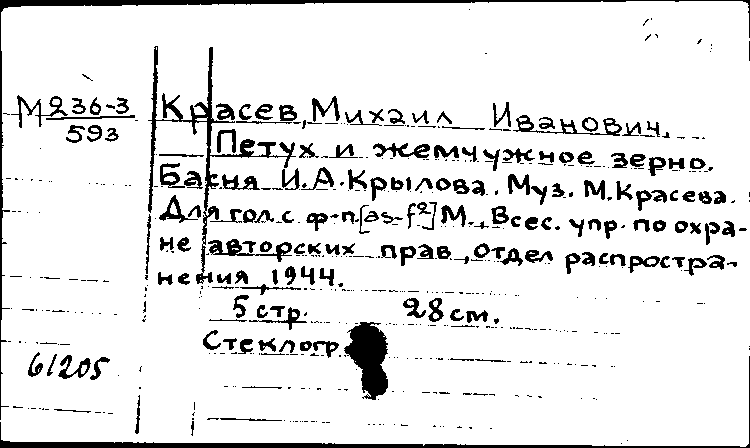 М 236-3
593
Красев, Михаил Иванович.
Петух и жемчужное зерно.
Басня И.А.Крылова. Муз. М.Красева.
Для гол. с ф-п. [as-f²] М., Всес. упр. по охра-
не авторских прав, отдел распростра-
нения, 1944.
5 стр. 28 см.
Стеклогр.
61205